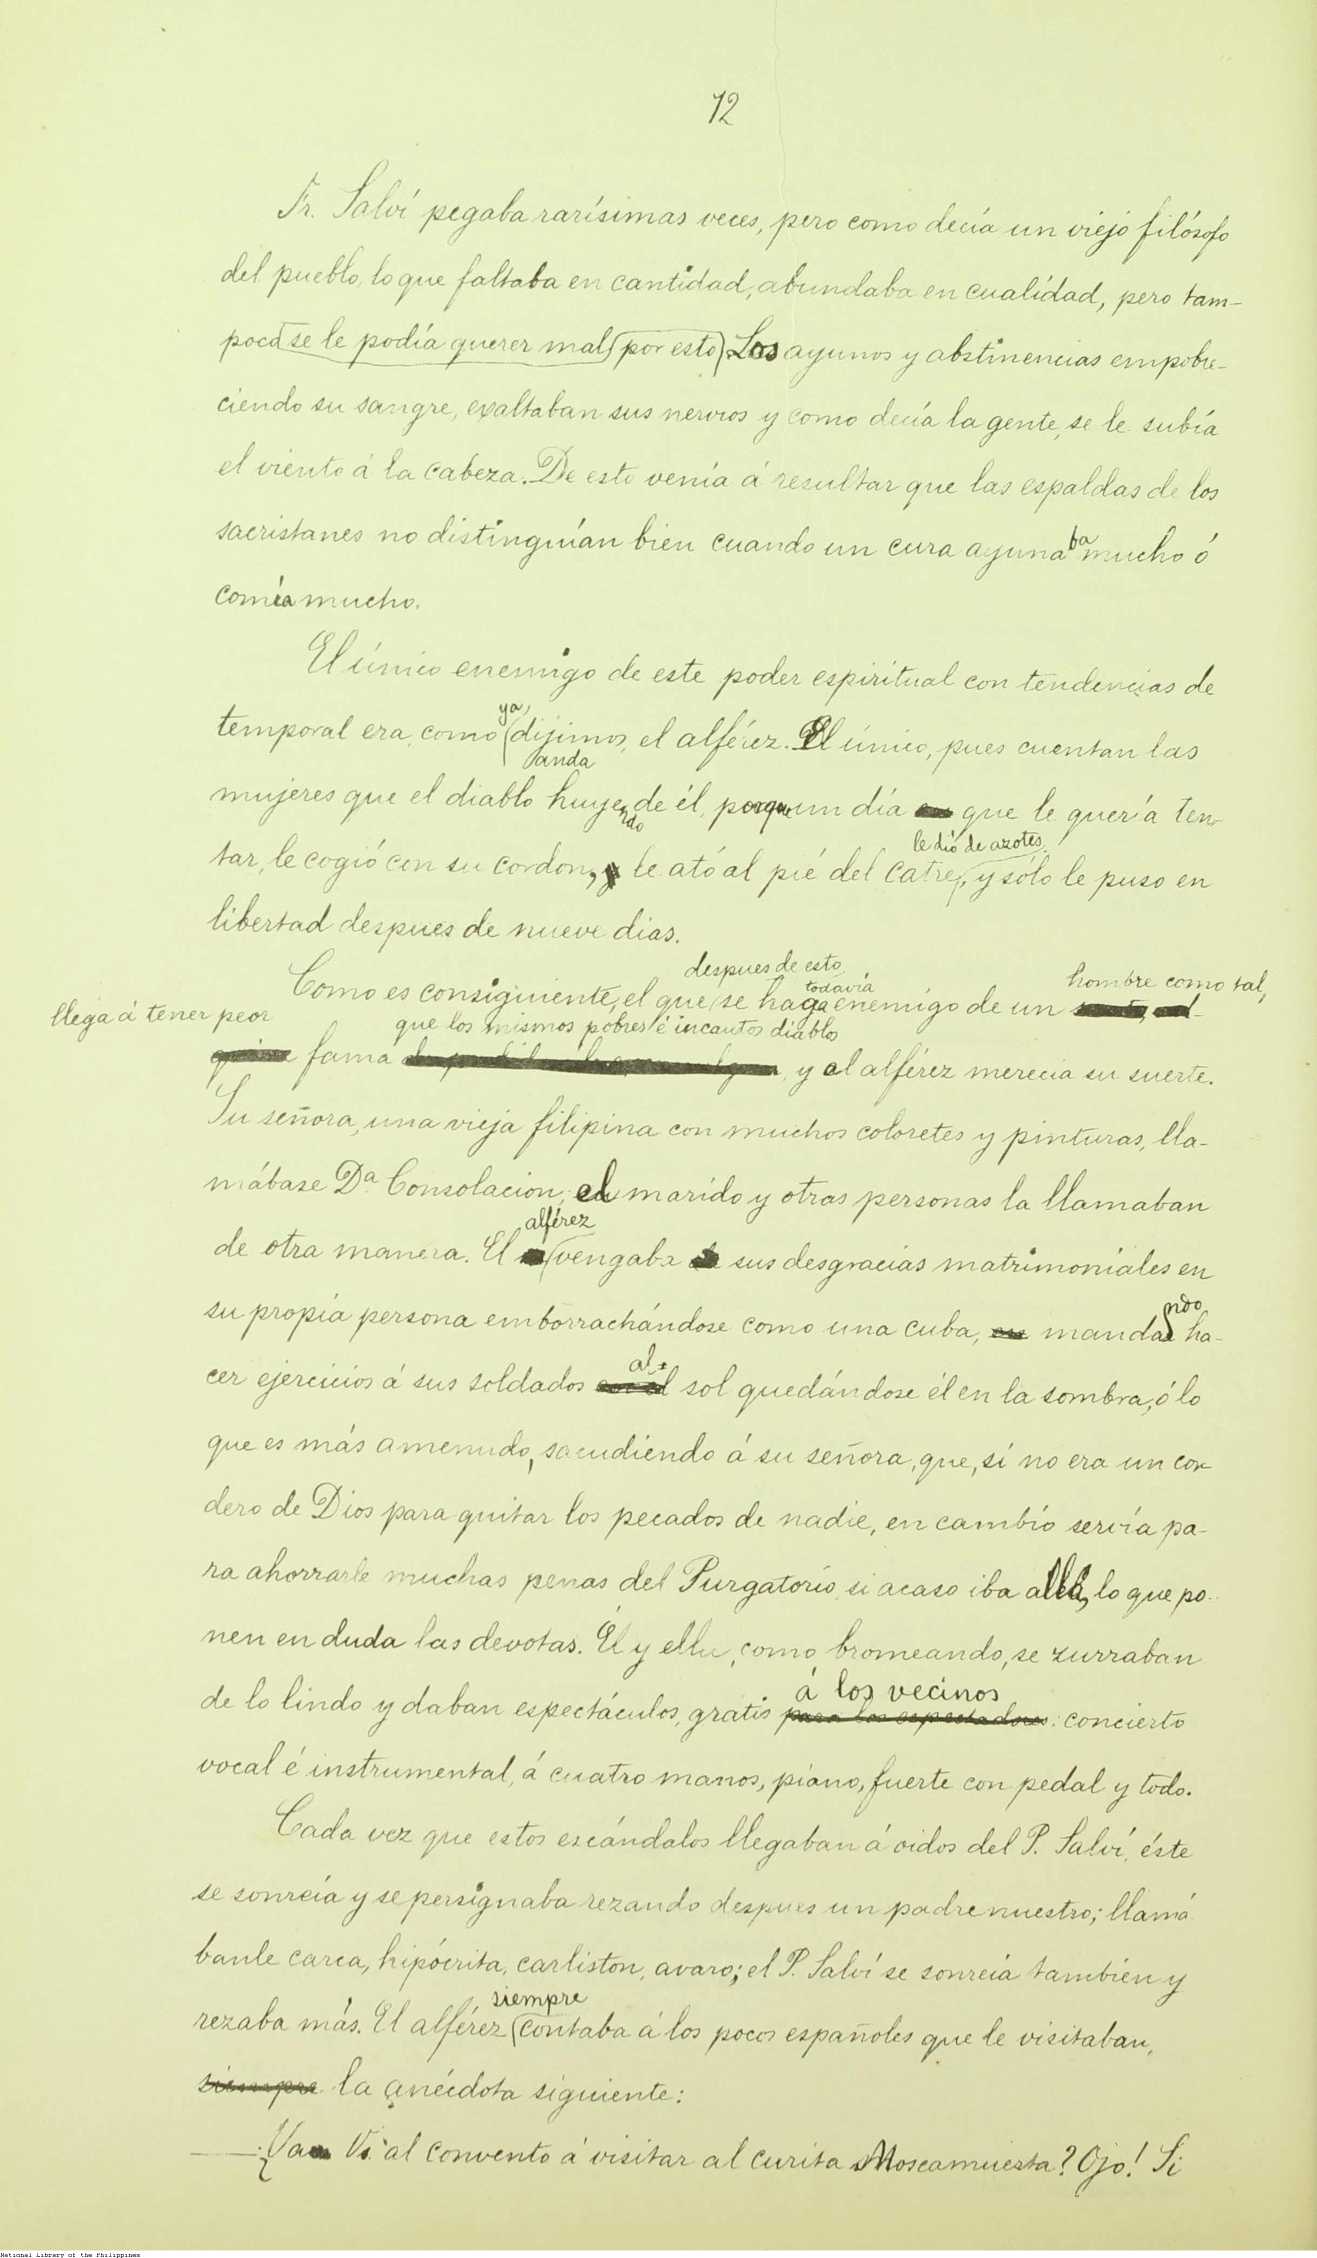 72
Fr. Salví pegaba rarísimas veces, pero como decía un viejo filósofo
del pueblo, lo que faltaba en cantidad, abundaba en cualidad, pero tam-
poco se le podía querer mal por esto. Los ayunos y abstinencias empobre-
ciendo su sangre, exaltaban sus nervios y como decía la gente, se le subía
el viento á la cabeza. De esto venía á resultar que las espaldas de los
sacristanes no distinguían bien cuando un cura ayunaba mucho ó
comía mucho.
El único enemigo de este poder espiritual con tendencias de
ya
temporal era, como dijimos, el alférez. El único, pues cuentan las
anda
mujeres que el diablo huyendo de él, porque un día que le quería ten-
le dió de azotes
tar, le cogió con su cordon, le ató al pié del catre, y sólo le puso en
libertad despues de nueve dias.
despues de esto hombre como tal,
todavía
Como es consiguiente, el que se haga enemigo de un
llega á tener peor
que los mismos pobres é incautos diablos
fama y el alférez merecia su suerte.
Su señora, una vieja filipina con muchos coloretes y pinturas, lla-
mábase Dª Consolacion; el marido y otras personas la llamaban
alférez
de otra manera. El vengaba sus desgracias matrimoniales en
su propia persona emborrachándose como una cuba, mandando ha-
al
cer ejercicios á sus soldados sol quedándose él en la sombra, ó lo
que es más amenudo, sacudiendo á su señora, que, si no era un cor-
dero de Dios para quitar los pecados de nadie, en cambio servía pa-
ra ahorrarle muchas penas del Purgatorio, si acaso iba allá, lo que po-
nen en duda las devotas. Él y ella, como bromeando, se zurraban
á los vecinos
de lo lindo y daban espectáculos, gratis para los espectadores: concierto
vocal é instrumental, á cuatro manos, piano, fuerte con pedal y todo.
Cada vez que estos escándalos llegaban á oidos del P. Salví, éste
se sonreía y se persignaba rezando despues un padre nuestro; llamá
banle carca, hipócrita, carliston, avaro; el P. Salví se sonreía también y
siempre
rezaba más. El alférez contaba á los pocos españoles que le visitaban,
siempre la anécdota siguiente:
— ¿Va V. al convento á visitar al curita Moscamuerta? Ojo! Si
National Library of the Philippines